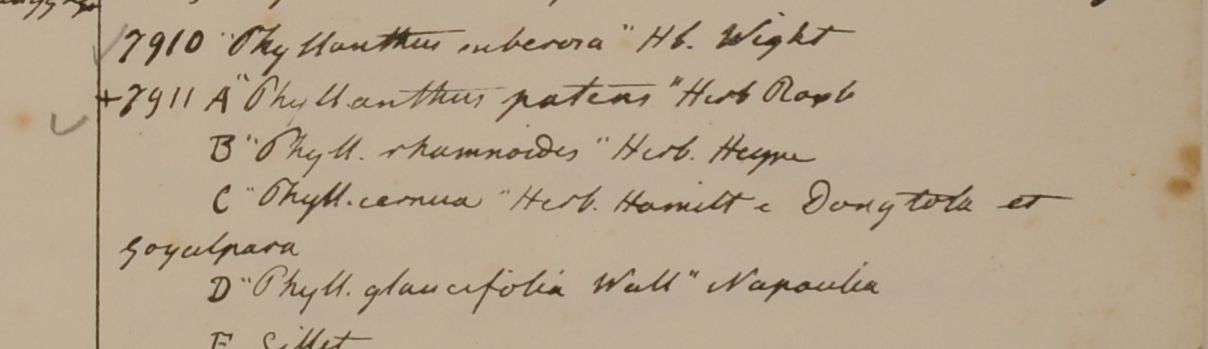 7910 "Phyllanthus suberosa" Hb. Wight
+7911 A "Phyllanthus patens" Herb Roxb
B "Phyll. rhamnoides" Herb. Heyne
C "Phyll. cernua" Herb. Hamilt e Dongtola et
Goyalpara
D "Phyll. glaucifolia Wall" Napaulia
E Sillet